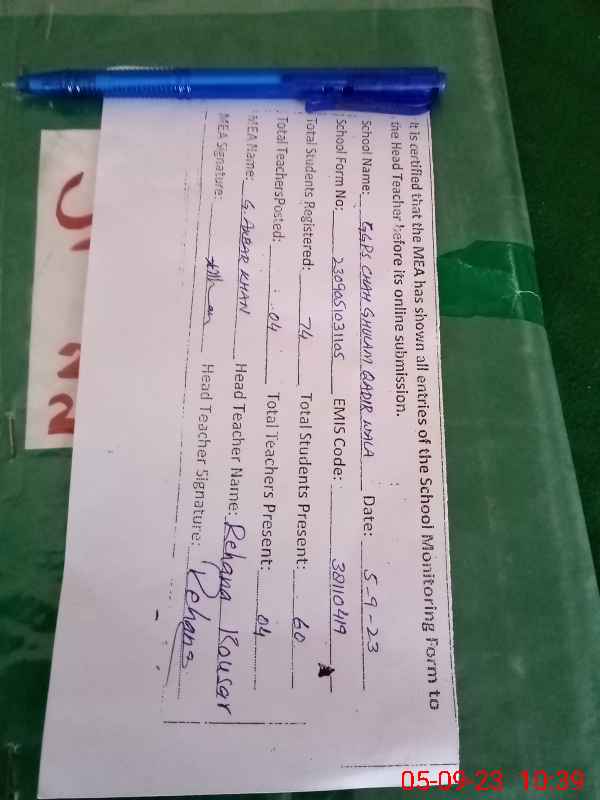 It is certified that the MEA has shown all entries of the School Monitoring Form to
the Head Teacher before its online submission.
School Name: GGPS CHAH GHULAM QADIR WALA Date: 5-9-23
School Form No: 2309051031105 EMIS Code: 38110419
Total Students Registered: 74 Total Students Present: 60
Total TeachersPosted: 04 Total Teachers Present: 04
MEA Name: G. AKBAR KHAN Head Teacher Name: Rehana Kousar
MEA Signature: Head Teacher Signature: Rehana
05-09-23 10:39